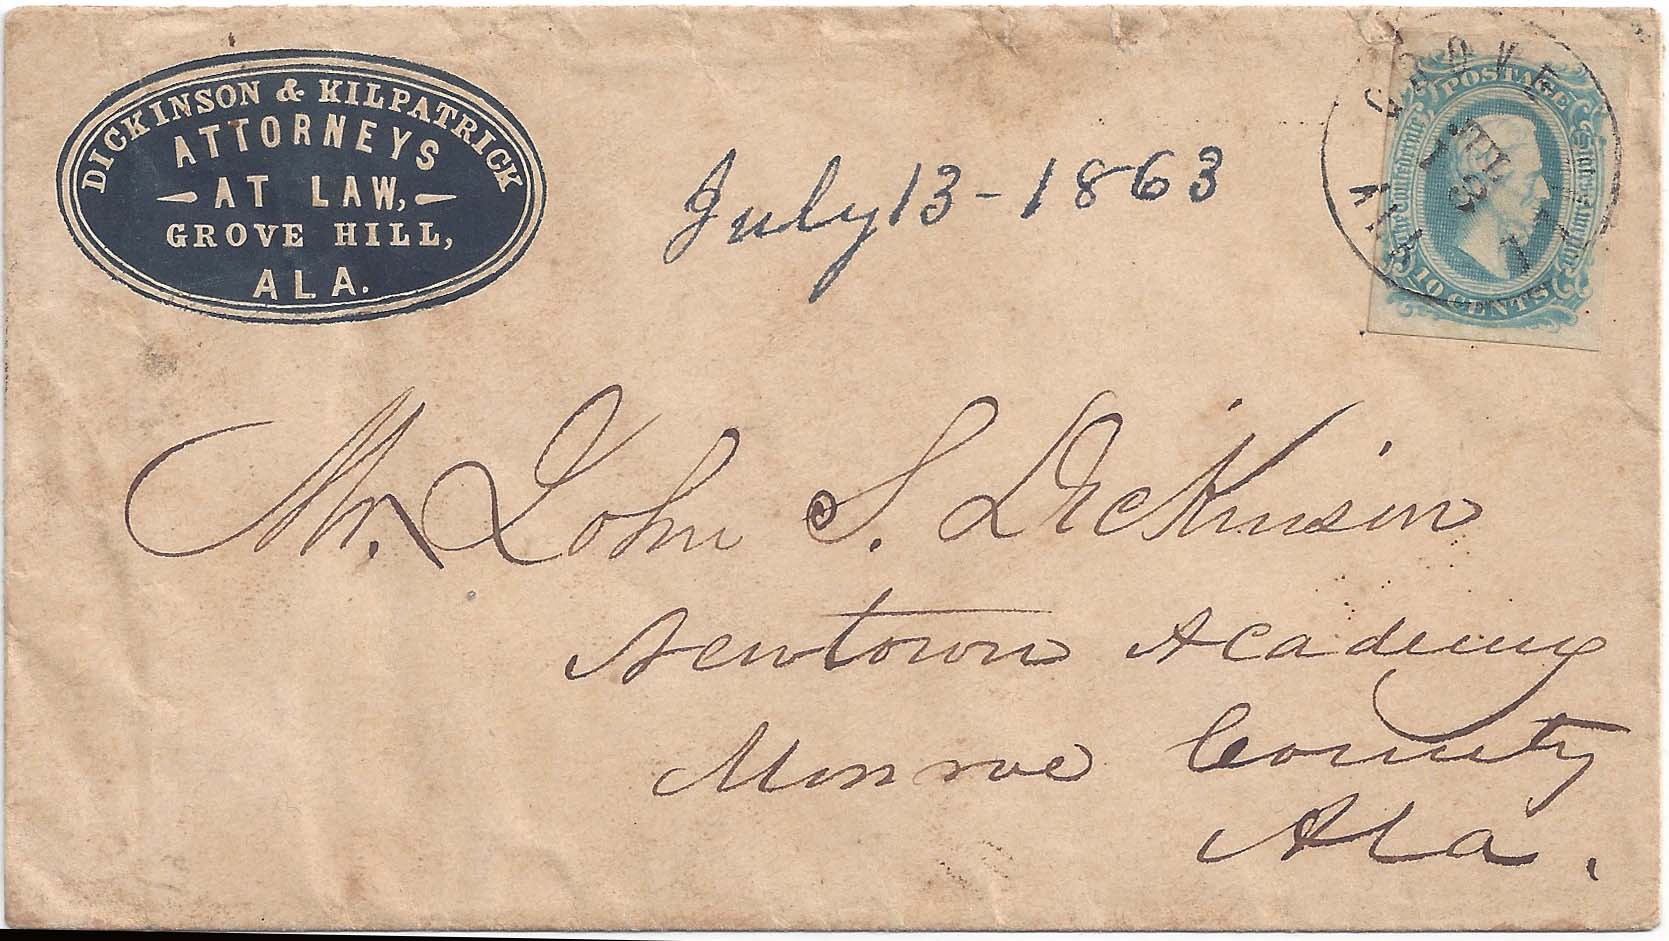 DICKINSON & KILPATRICK
ATTORNEYS
AT LAW,
GROVE HILL,
ALA.
July 13 - 1863
GROVE HILL
ALA
JUL
POSTAGE
The Confederate States of America
10 CENTS
Mr. John S. Dickinson
Newtown Academy
Monroe County
Ala.